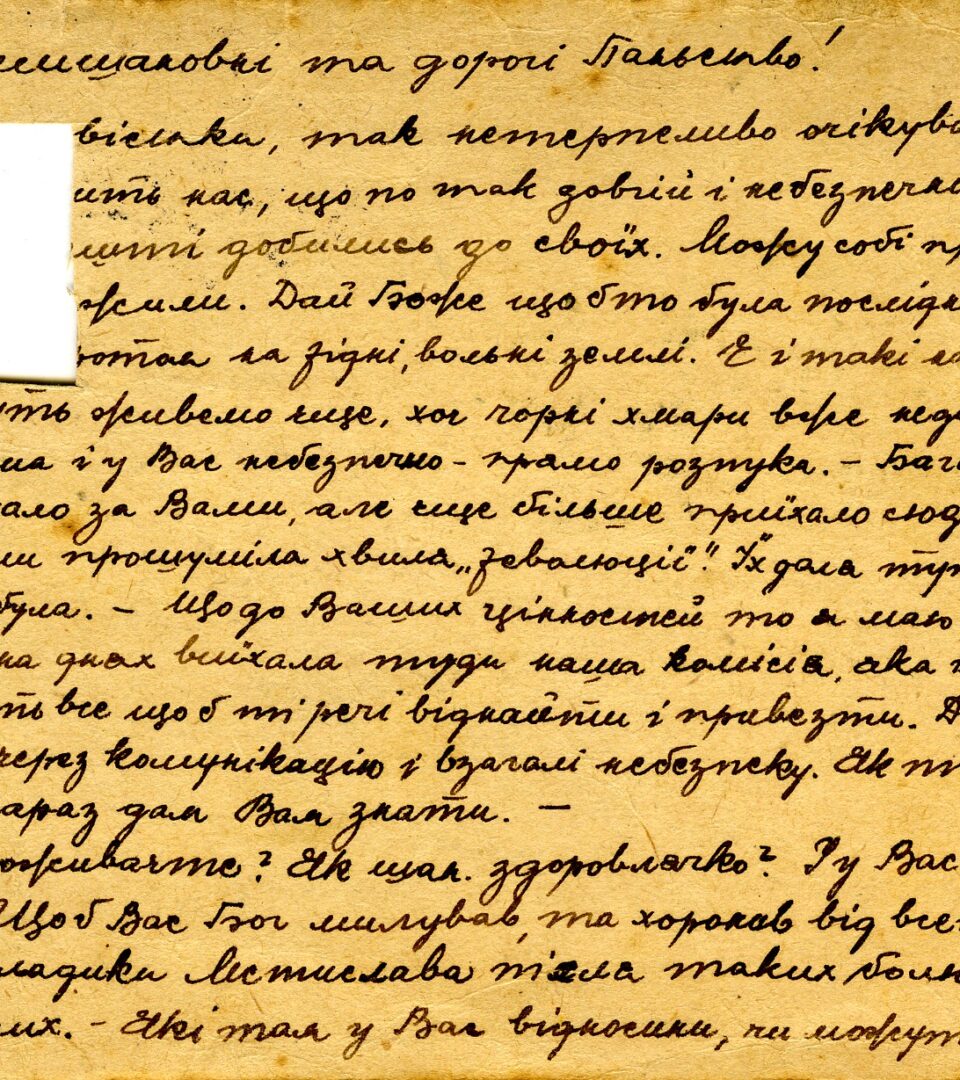 шишановні та дорогі Паньство!
вістка, так нетерпеливо очікува
ить нас, що по так довгій і небезпечн
шті добились до своїх. Можу собі пр
жили. Дай Боже щоб то була послідн
на рідні, вольні землі. Е і такі
уть живемо още, хоч чорні хмари вже нед
ма і у Вас небезпечно - прямо розпука. - Бага
ало за Вами, але още більше приїхало сюд
ми прошуміла хвиля „революції". Їх доля тут
була. - Що до Ваших цінностей то я маю
на днях виїхала туди наша комісія, яка
ть все щоб ті речі віднайти і привезти. Д
через комунікацію і взагалі небезпеку. Як
араз дам Вам знати. -
оживаєте? Як шан. здоровлячко? І у Вас
Щоб Вас Бог милував, та хоронив від все
ладики Мстислава після таких болю
их. - Які там у Вас відносини, чи можут